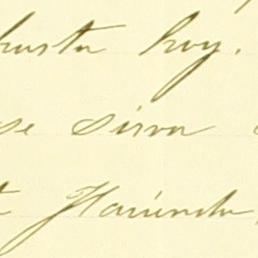 husta hoy.
se sirva
Hacienda,